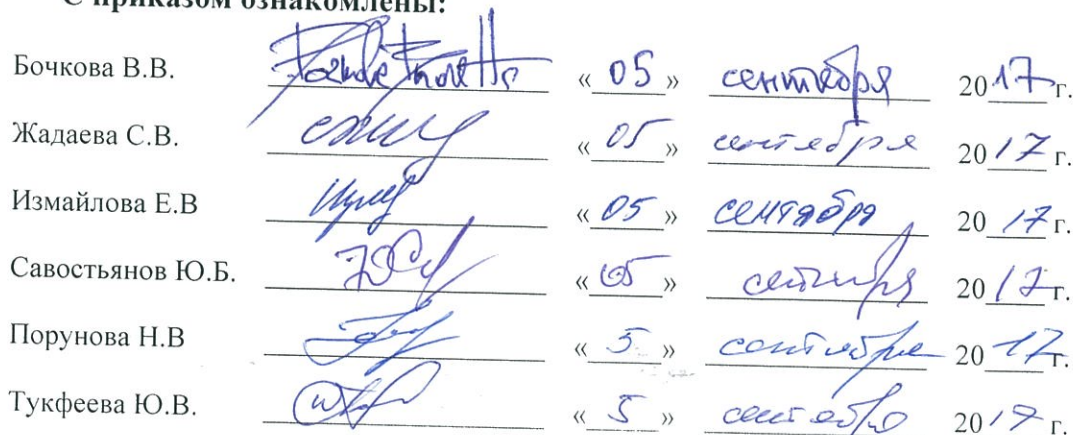 С приказом ознакомлены:
Бочкова В.В. « 05 » сентября 2017г.
Жадаева С.В. « 05 » сентября 2017 г.
Измайлова Е.В « 05 » сентября 2017 г.
Савостьянов Ю.Б. « 05 » сентября 2017г.
Порунова Н.В « 5 » сентября 2017г.
Тукфеева Ю.В. « 5 » сентября 2017 г.